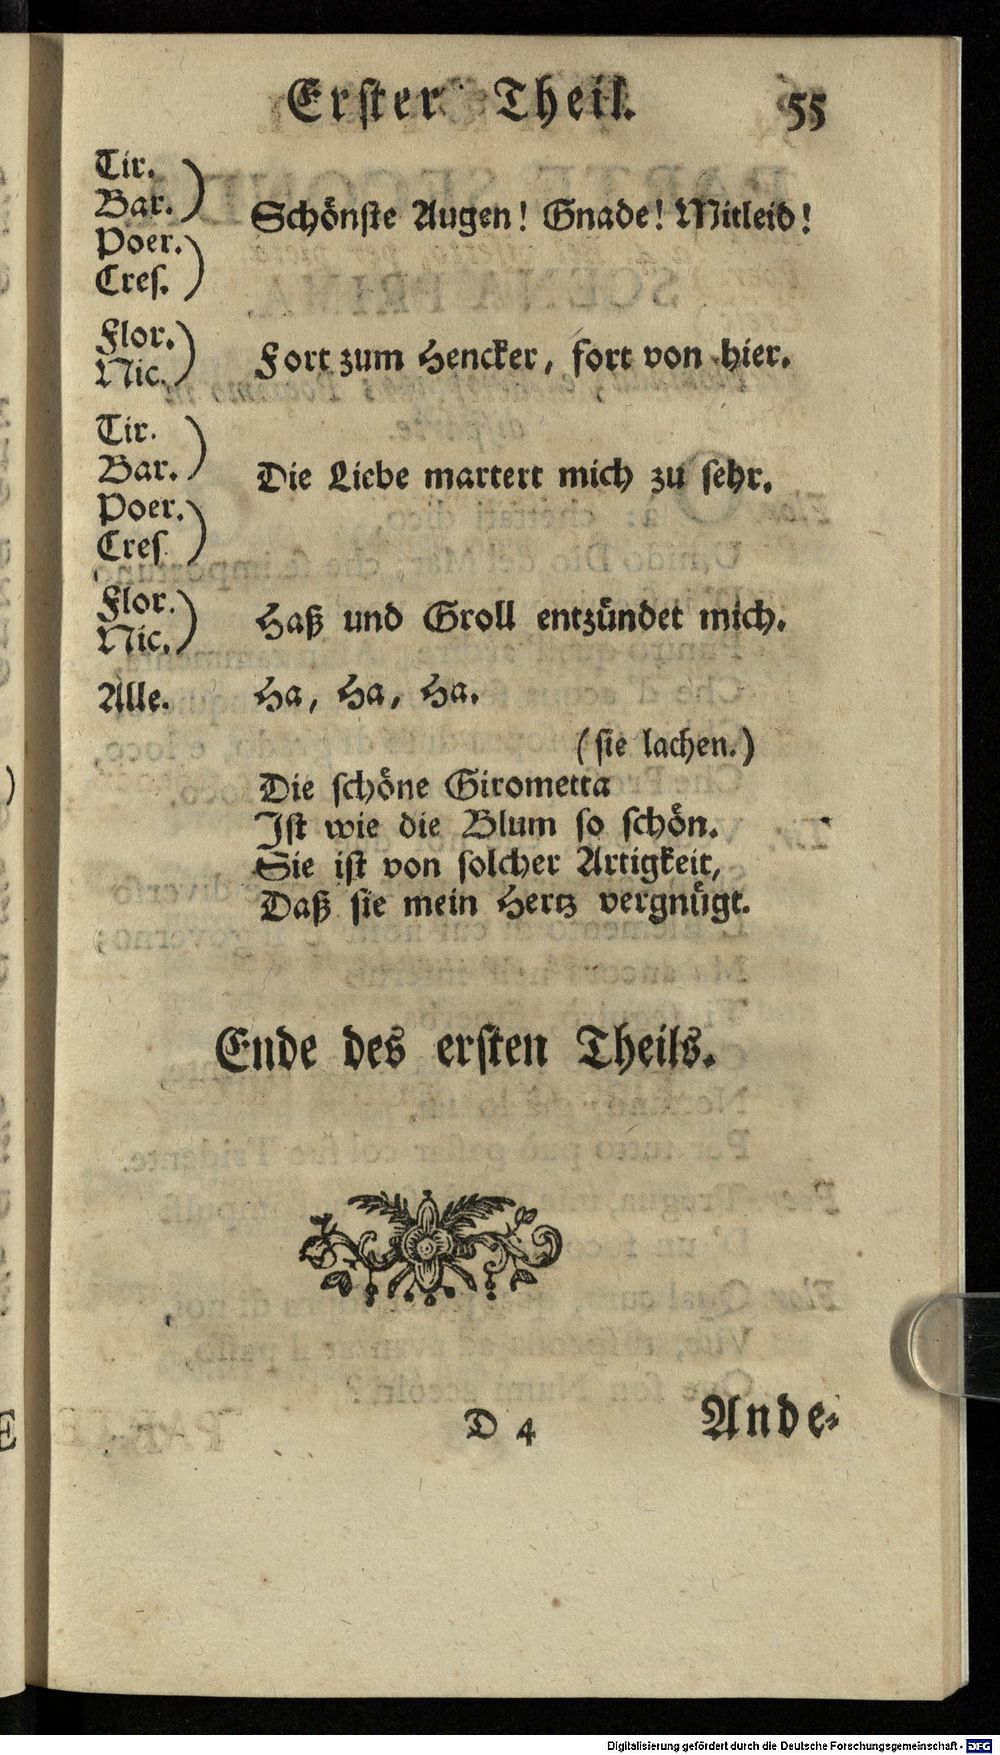 Erster Theil. 55
Tir.
Bar.
Poer.
Cres.
Schönste Augen! Gnade! Mitleid!
Flor.
Nic.
Fort zum Hencker, fort von hier.
Tir.
Bar.
Poer.
Cres.
Die Liebe martert mich zu sehr.
Flor.
Nic.
Haß und Groll entzündet mich.
Alle. Ha, Ha, Ha.
(sie lachen.)
Die schöne Girometta
Ist wie die Blum so schön.
Sie ist von solcher Artigkeit,
Daß sie mein Hertz vergnügt.
Ende des ersten Theils.
D 4 Ande-
Digitalisierung gefördert durch die Deutsche Forschungsgemeinschaft - DFG